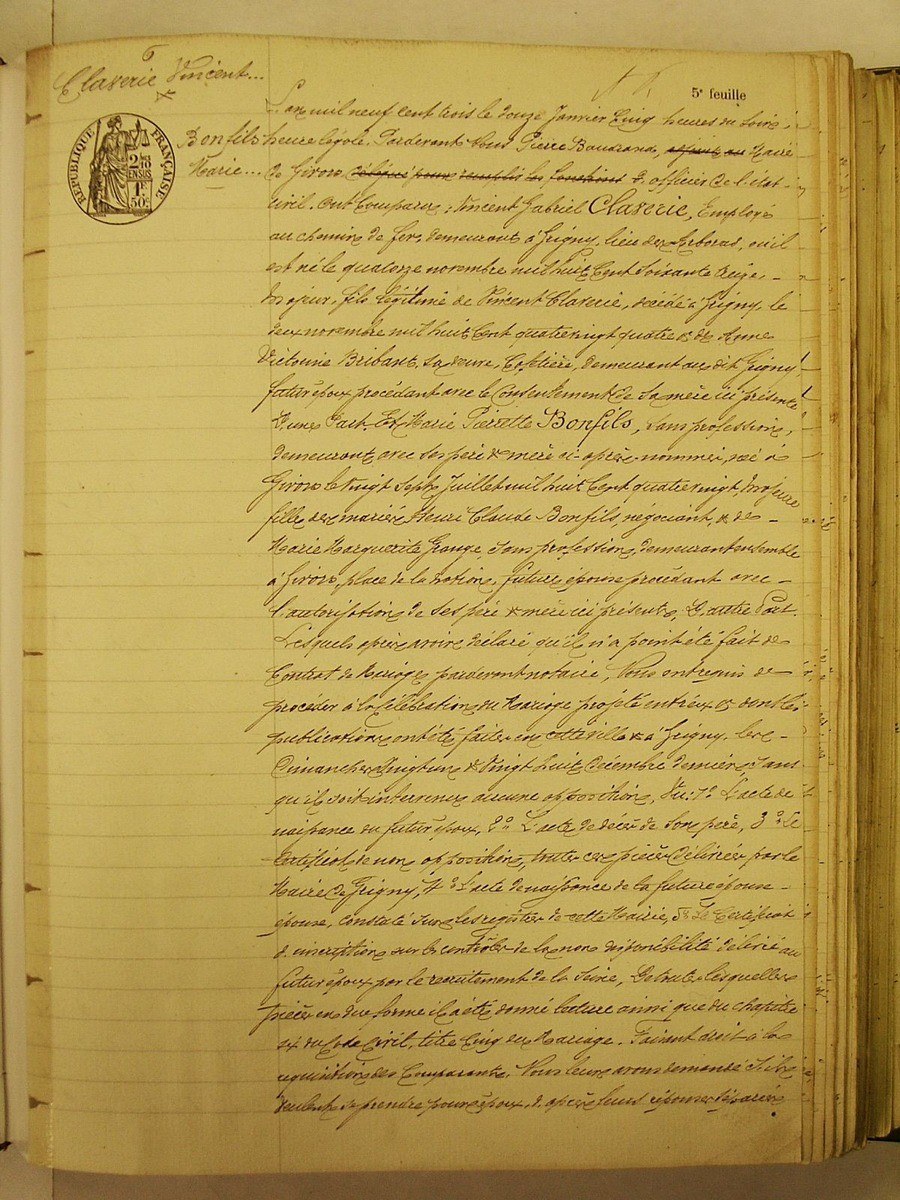 6
Claverie Vincent...
&
Bonfils
Marie...
5e feuille
RÉPUBLIQUE FRANÇAISE
L'an mil neuf cent trois le douze Janvier Cinq heures du soir,
heure légale. Pardevant Nous Pierre Baudrand, Maire
de Givors officier de l'état
civil. Ont Comparu : Vincent Gabriel Claverie, Employé
au chemin de fer, demeurant à Grigny, lieu des Arboras, où il
est né le quatorze novembre mil huit Cent Soixante Seize,
Majeur, fils légitime de Vincent Claverie, décédé à Grigny, le
deux novembre mil huit Cent quatre vingt quatre & de Anne
Victorine Bribant, sa veuve, demeurant au dit Grigny
futur époux procédant avec le Consentement de Sa mère ici présente
d'une Part. Et Marie Pierrette Bonfils, Sans profession,
demeurant avec ses père & mère ci-après nommés, née à
Givors le vingt Sept Juillet mil huit Cent quatre vingt, Majeure
fille des mariés Henri Claude Bonfils, négociant, & de
Marie Marguerite Grange, Sans profession, demeurant ensemble
à Givors, place de la nation, future épouse procédant avec
l'autorisation de Ses père & mère ici présents, d'autre Part.
Lesquels après avoir déclaré qu'il n'a point été fait de
Contrat de Mariage pardevant notaire, Nous ont requis de
procéder à la Célébration du Mariage projeté entr'eux & dont les
publications ont été faites en cette ville & à Grigny, les
Dimanches vingt un & vingt huit Décembre dernier, Sans
qu'il soit intervenu aucune opposition, Vu : 1° L'acte de
naissance du futur époux, 2° L'acte de décès de Son père, 3° Le
Certificat de non opposition, toutes ces pièces délivrées par le
Maire de Grigny, 4° L'acte de naissance de la future épouse
épouse, constaté Sur les registres de cette Mairie, 5° Le Certificat
d'inscription sur les contrôles de la non disponibilité délivré au
futur époux par le recrutement de la Seine, De toutes lesquelles
pièces en due forme il a été donné lecture ainsi que du chapitre
six du Code Civil, titre Cinq du Mariage. Faisant droit à la
réquisition des Comparants, Nous leurs avons demandé S'ils
veulent se prendre pour époux, & après leurs réponses Séparées